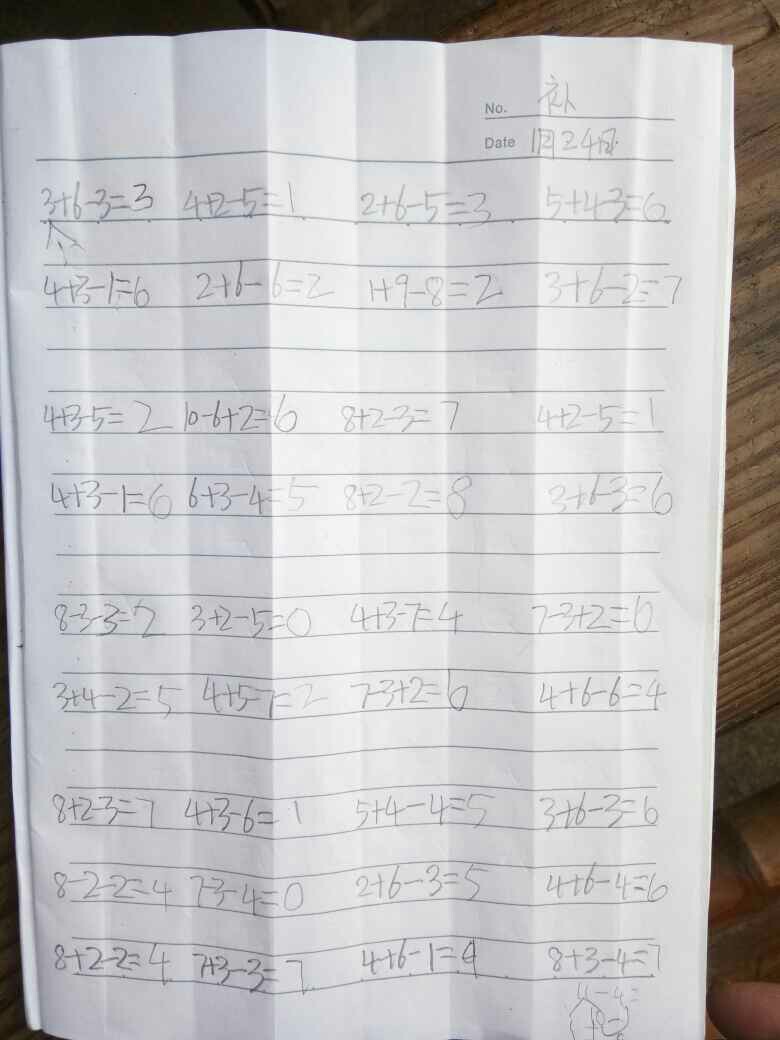 No. 补
Date 1月24日
3+6-3=3 4+2-5=1 2+6-5=3 5+4-3=6
4+3-1=6 2+6-6=2 1+9-8=2 3+6-2=7
4+3-5=2 10-6+2=6 8+2-3=7 4+2-5=1
4+3-1=6 6+3-4=5 8+2-2=8 3+6-3=6
8-3-3=2 3+2-5=0 4+3-7=4 7-3+2=6
3+4-2=5 4+5-7=2 7-3+2=6 4+6-6=4
8+2-3=7 4+3-6=1 5+4-4=5 3+6-3=6
8-2-2=4 7-3-4=0 2+6-3=5 4+6-4=6
8+2-2=4 7+3-3=7 4+6-1= 8+3-4=7
11-4=